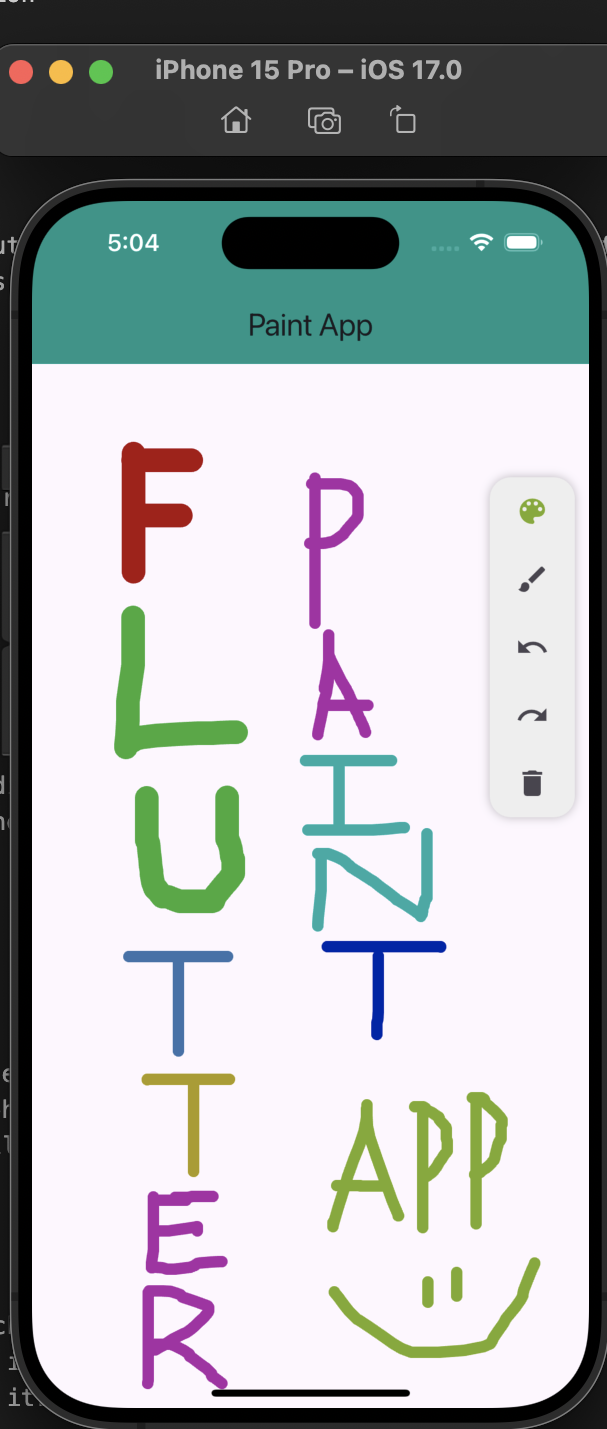 iPhone 15 Pro – iOS 17.0
5:04
Paint App
FLUTTER
PAINT
APP